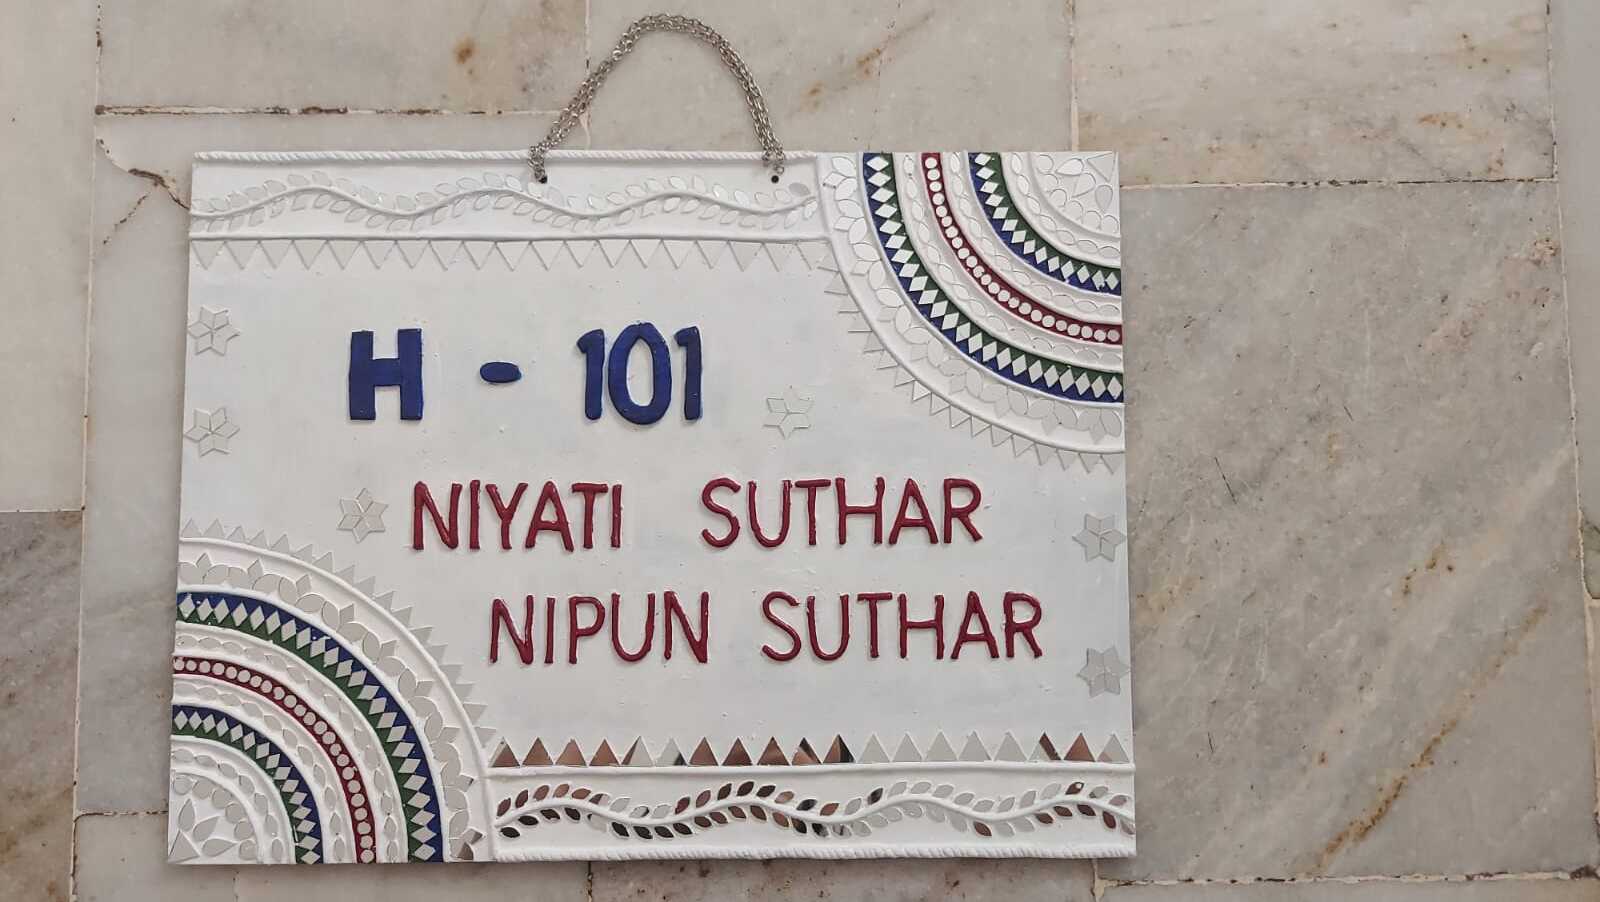 H - 101
NIYATI SUTHAR
NIPUN SUTHAR